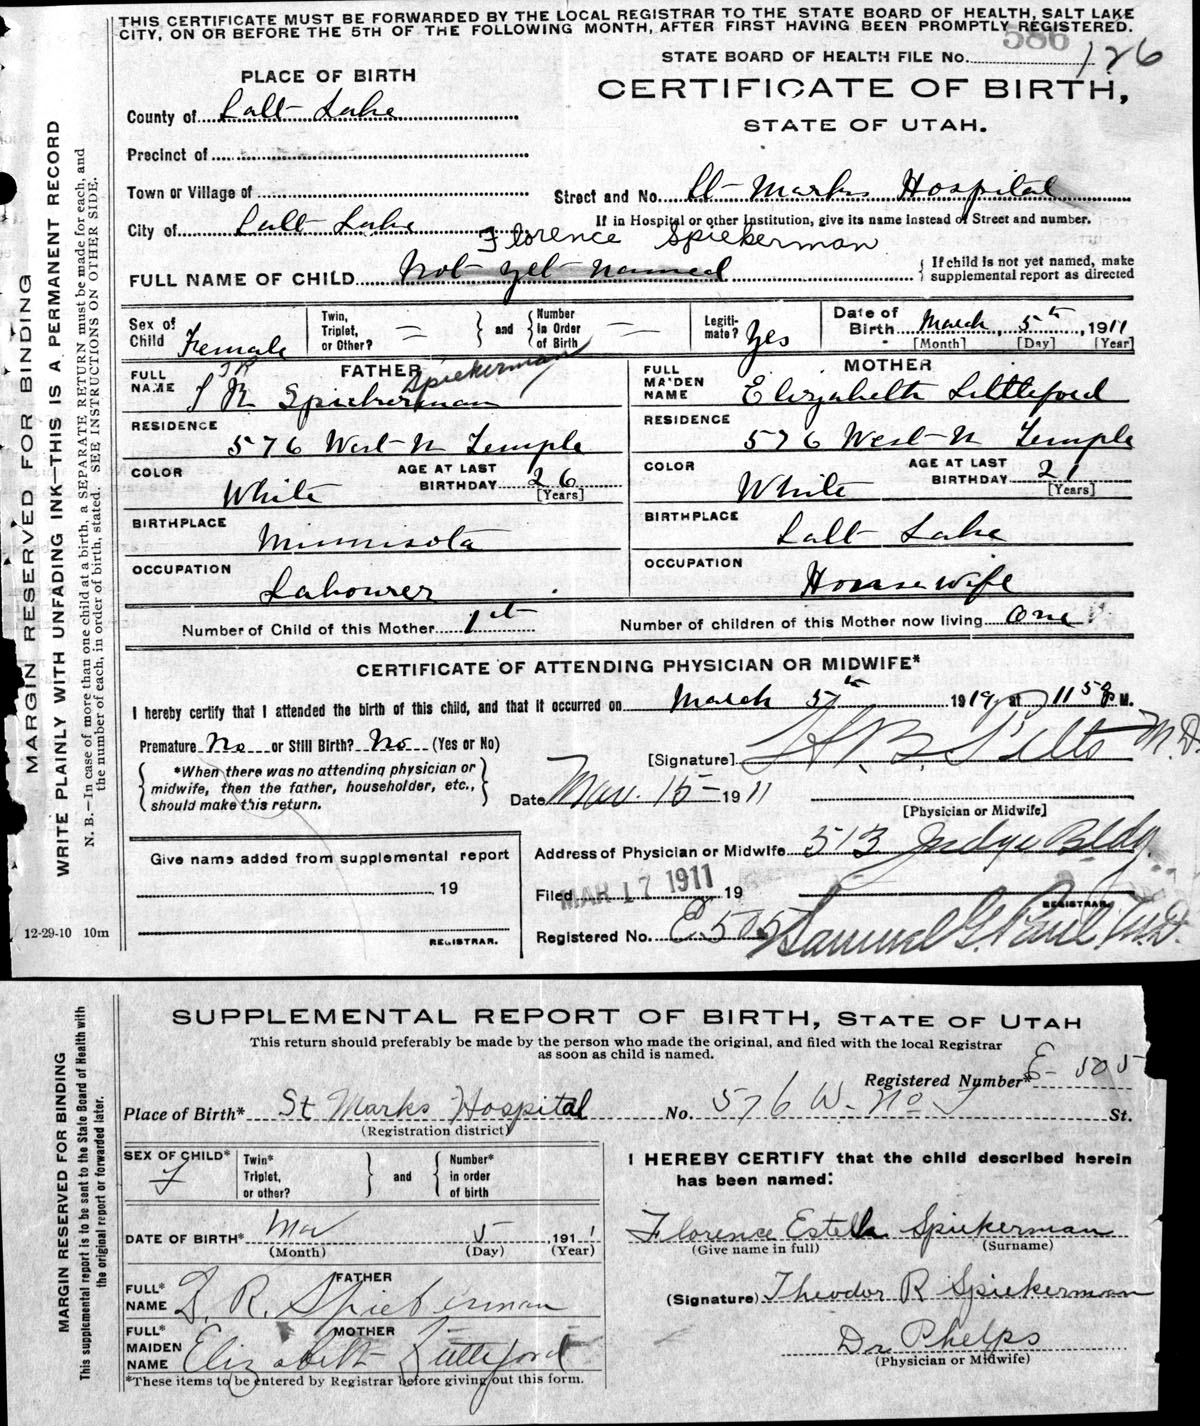 THIS CERTIFICATE MUST BE FORWARDED BY THE LOCAL REGISTRAR TO THE STATE BOARD OF HEALTH, SALT LAKE
CITY, ON OR BEFORE THE 5TH OF THE FOLLOWING MONTH, AFTER FIRST HAVING BEEN PROMPTLY REGISTERED.
586
STATE BOARD OF HEALTH FILE No. 126
PLACE OF BIRTH
CERTIFICATE OF BIRTH,
STATE OF UTAH.
County of Salt Lake
Precinct of
Town or Village of
Street and No. St Marks Hospital
If in Hospital or other Institution, give its name instead of Street and number.
City of Salt Lake
Florence Spiekerman
FULL NAME OF CHILD Not yet named
If child is not yet named, make
supplemental report as directed
Sex of Child Female
Twin, Triplet, or Other? — and Number In Order of Birth —
Legitimate? Yes
Date of Birth March 5th, 1911
[Month] [Day] [Year]
FATHER
Spiekerman
FULL NAME T R Spiekerman
RESIDENCE 576 West N Temple
COLOR White
AGE AT LAST BIRTHDAY 26
[Years]
BIRTHPLACE Minnisota
OCCUPATION Labourer
MOTHER
FULL MAIDEN NAME Elizabelth Littleford
RESIDENCE 576 West N Temple
COLOR White
AGE AT LAST BIRTHDAY 21
[Years]
BIRTHPLACE Salt Lake
OCCUPATION House wife
Number of Child of this Mother 1st
Number of children of this Mother now living one
CERTIFICATE OF ATTENDING PHYSICIAN OR MIDWIFE*
I hereby certify that I attended the birth of this child, and that it occurred on March 5th 191 at 11 58 P M.
Premature No or Still Birth? No (Yes or No)
*When there was no attending physician or
midwife, then the father, householder, etc.,
should make this return.
[Signature] M.D.
Date Mar. 15 1911
[Physician or Midwife]
Give name added from supplemental report
19
REGISTRAR.
Address of Physician or Midwife 513 Judge Bldg.
Filed MAR 17 1911 19
REGISTRAR.
Registered No. E505 Samuel G. Paul M.D.
12-29-10 10m
MARGIN RESERVED FOR BINDING
WRITE PLAINLY WITH UNFADING INK—THIS IS A PERMANENT RECORD
N. B.—In case of more than one child at a birth, a SEPARATE RETURN must be made for each, and
the number of each, in order of birth, stated. SEE INSTRUCTIONS ON OTHER SIDE.
SUPPLEMENTAL REPORT OF BIRTH, STATE OF UTAH
This return should preferably be made by the person who made the original, and filed with the local Registrar
as soon as child is named.
Registered Number* E-505
Place of Birth* St Marks Hospital No. 576 W. No T St.
(Registration district)
SEX OF CHILD* F
Twin* Triplet, or other? and Number* in order of birth
DATE OF BIRTH* Mar 5 1911
(Month) (Day) (Year)
FATHER
FULL* NAME D. R. Spieberman
MOTHER
FULL* MAIDEN NAME Elizabeth Littleford
*These items to be entered by Registrar before giving out this form.
I HEREBY CERTIFY that the child described herein
has been named:
Florence Estella Spiekerman
(Give name in full) (Surname)
(Signature) Theodor R Spiekermann
Dr Phelps
(Physician or Midwife)
MARGIN RESERVED FOR BINDING
This supplemental report is to be sent to the State Board of Health with
the original report or forwarded later.